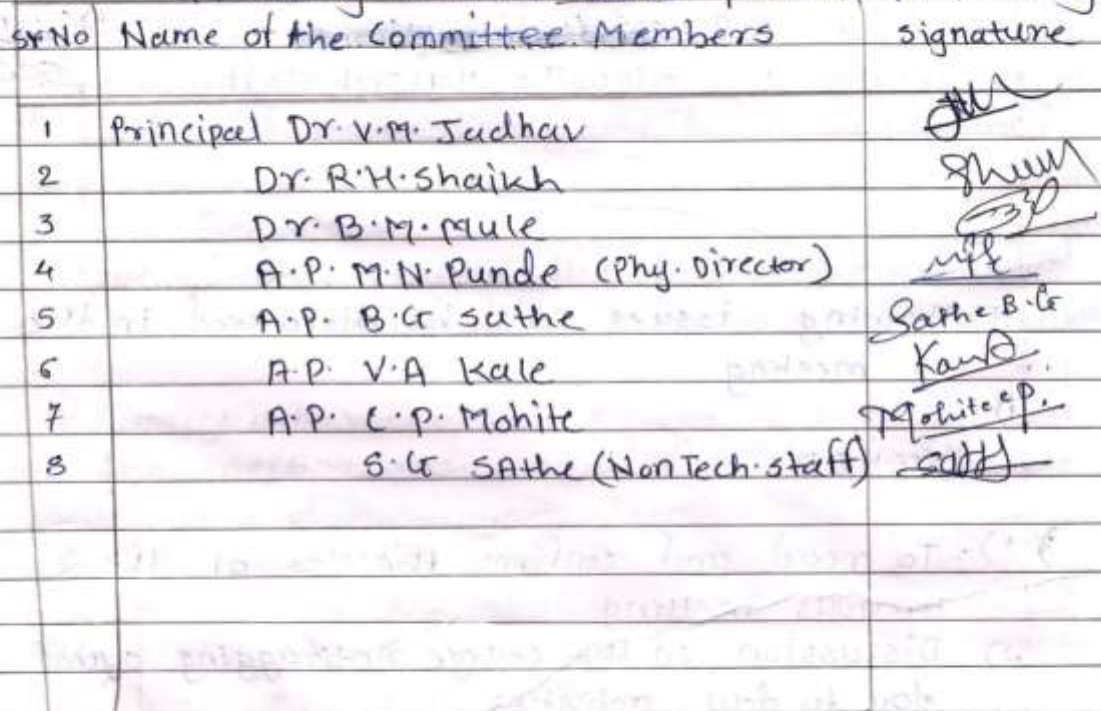 Sr.No Name of the Committee Members signature
1 Principal Dr. V.M. Jadhav
2 Dr. R.H. Shaikh
3 Dr. B.M. Mule
4 A.P. M.N. Punde (Phy. Director)
5 A.P. B.G Sathe Sathe B.G
6 A.P. V.A Kale
7 A.P. C.P. Mohite Mohite C.P.
8 S.G SAthe (Non Tech. staff)